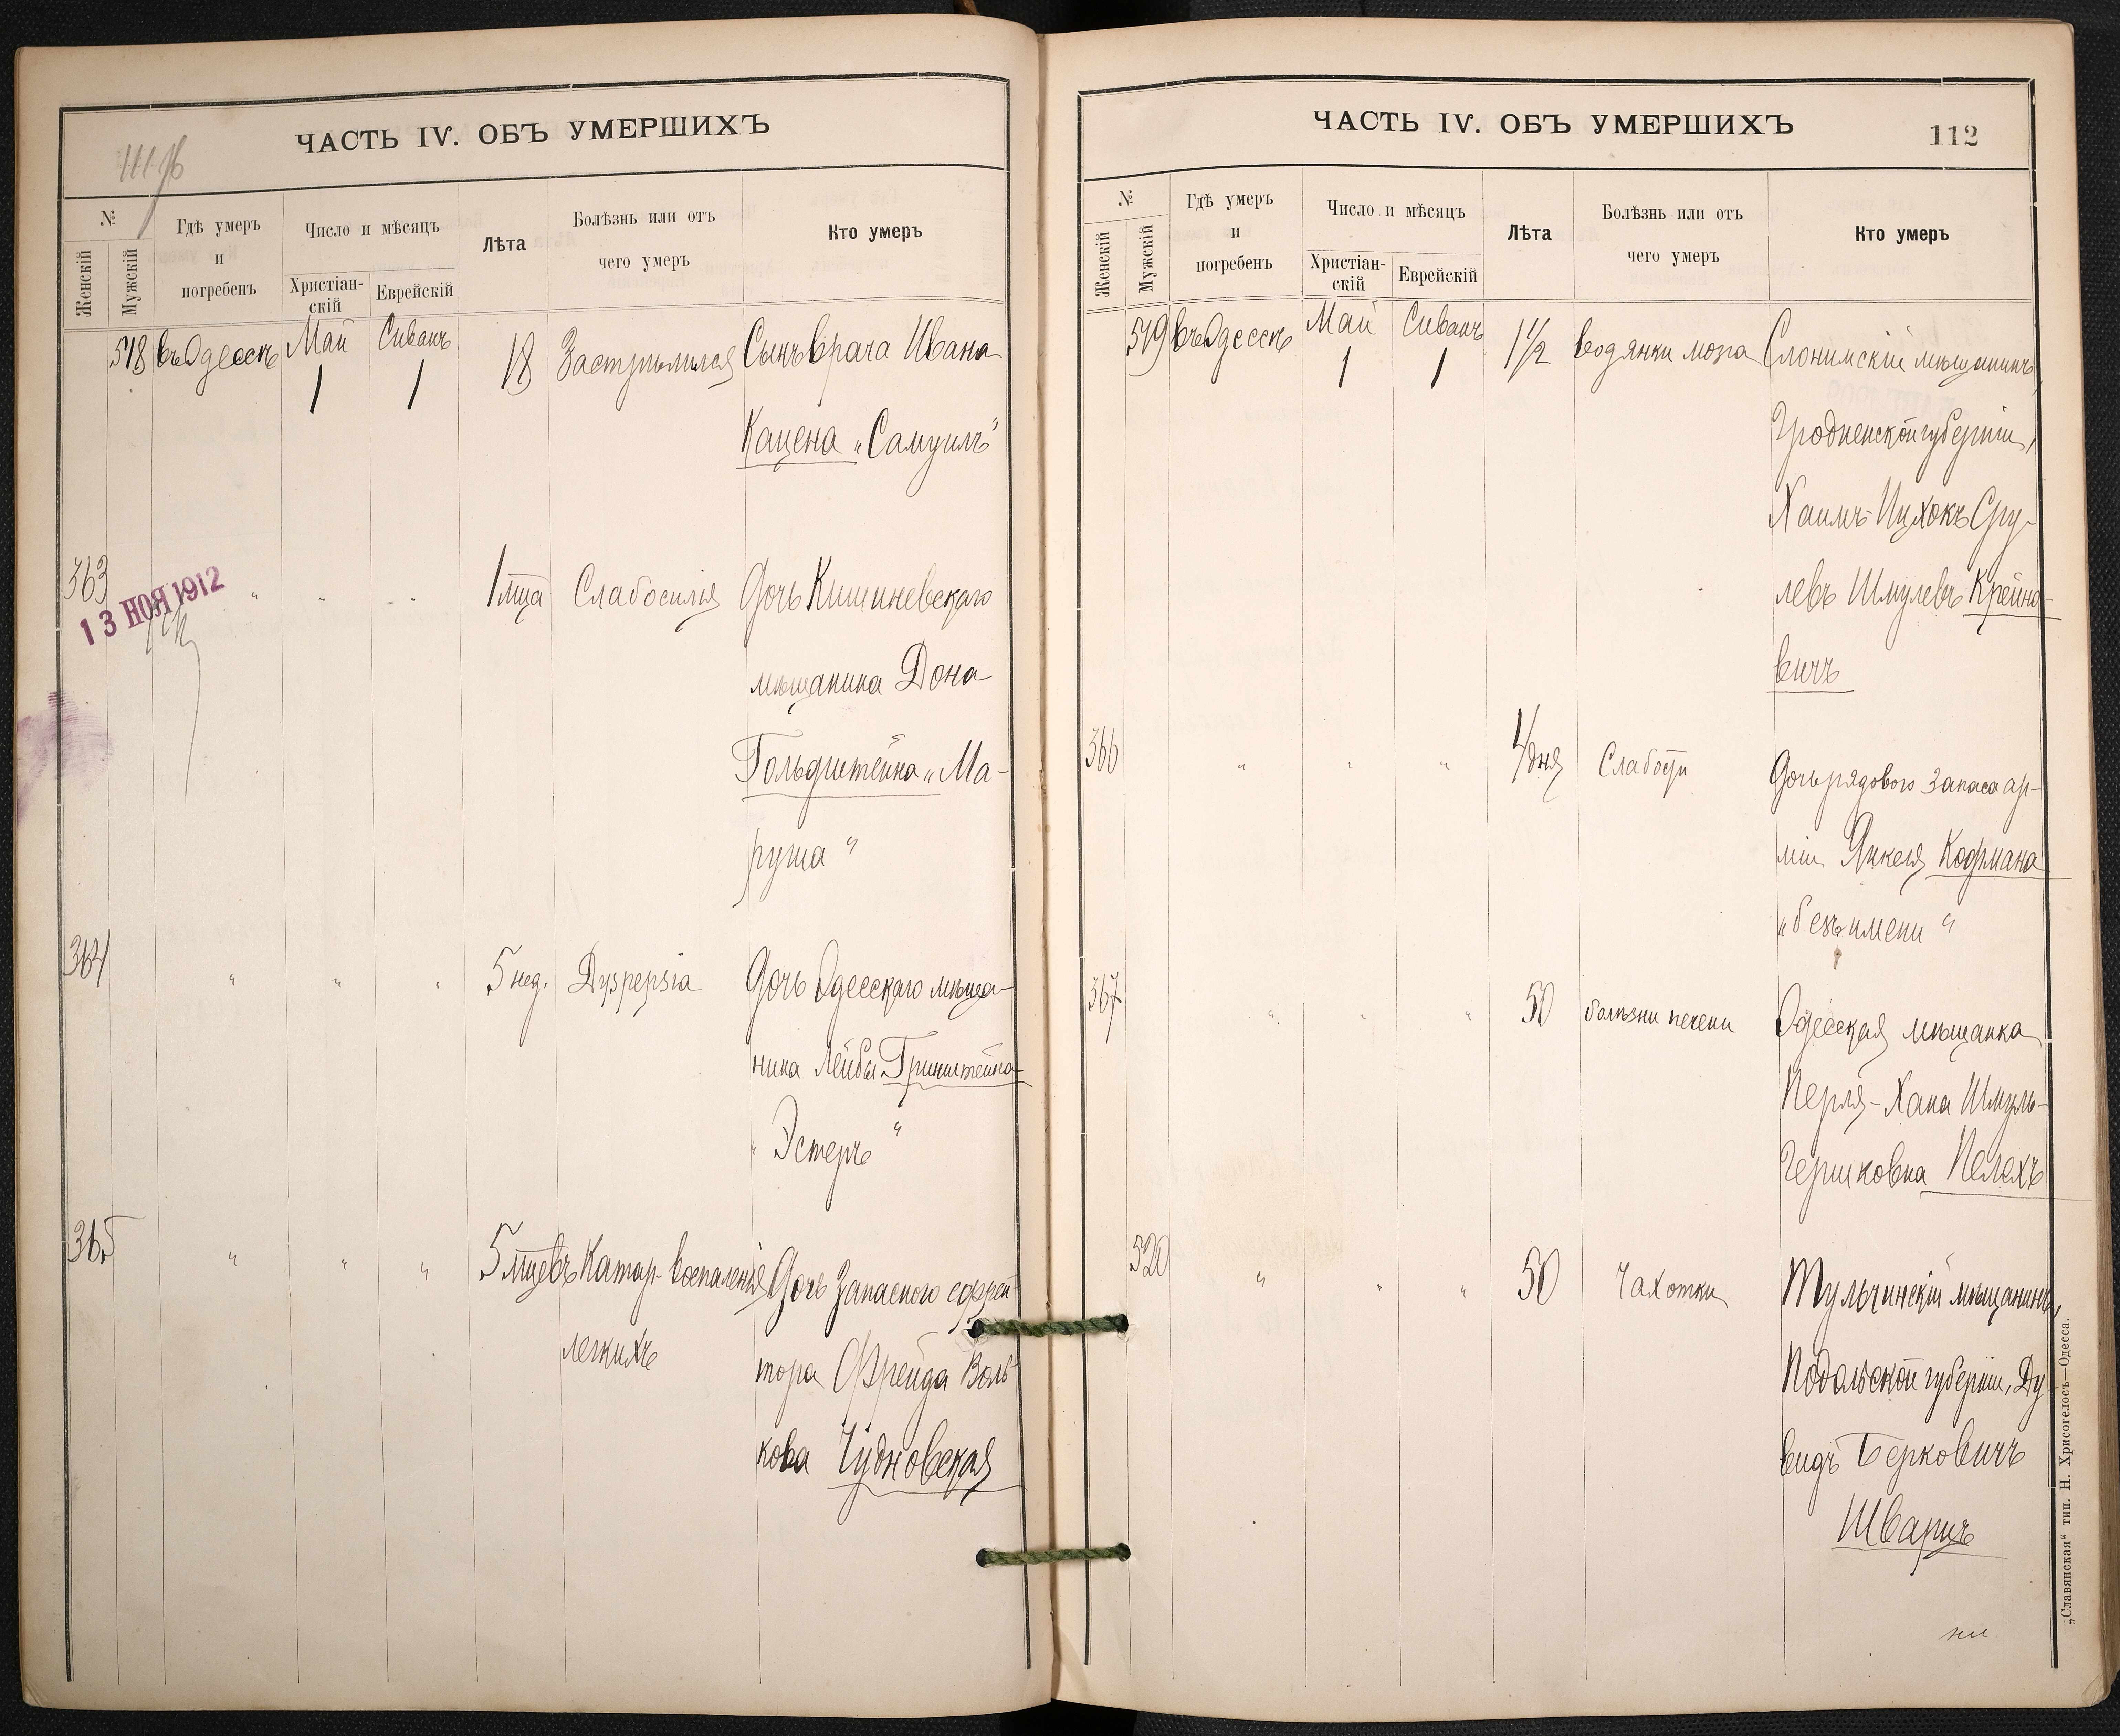 ЧАСТЬ IV. ОБЪ УМЕРШИХЪ
№
Женскій
Мужскій
Гдѣ умеръ
и
погребенъ
Число и мѣсяцъ
Христіан-
скій
Еврейскій
Лѣта
Болѣзнь или отъ
чего умеръ
Кто умеръ
518 въ Одессѣ Май Сиванъ 18 Застрѣлился Сынъ врача Ивана
1 1
Кацена „Самуилъ"
363 " " " 1 мца Слабосилія Дочь Кишиневскаго
13 НОЯ 1912
мѣщанина Дона
Гольдштейна „Ма-
руша"
364 " " " 5 нед. Dyspepsia Дочь Одесскаго мѣща-
нина Лейбы Гринштейна
„Эстеръ"
365 " " " 5 мцевъ Катар. воспаленія Дочь Запасного ефрей-
легкихъ
тора Фрейда Воль-
кова Чудновская
ЧАСТЬ IV. ОБЪ УМЕРШИХЪ
112
№
Женскій
Мужскій
Гдѣ умеръ
и
погребенъ
Число и мѣсяцъ
Христіан-
скій
Еврейскій
Лѣта
Болѣзнь или отъ
чего умеръ
Кто умеръ
519 въ Одессѣ Май Сиванъ 1½ водянки мозга Слонимскій мѣщанинъ,
1 1
Гродненской губерніи,
Хаимъ-Ицхокъ Сру-
левъ Шмулевъ Крейно-
вичъ
366 " " " 4 дня Слабости Дочь рядового запаса ар-
міи Янкеля Кофмана
„безъ имени"
367 " " " 50 болѣзни печени Одесская мѣщанка
Перля-Хана Шмуль-
Гершковна Пелехъ
520 " " " 50 Чахотки Тульчинскій мѣщанинъ,
Подольской губерніи, Ду-
видъ Берковичъ
Шварцъ
„Славянская“ тип. Н. Хрисогелосъ—Одесса.